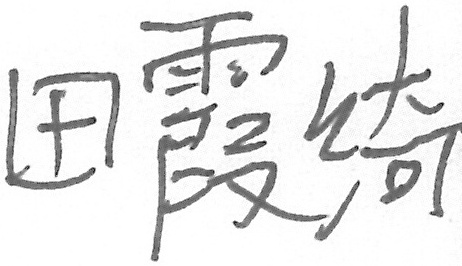 田霞绮